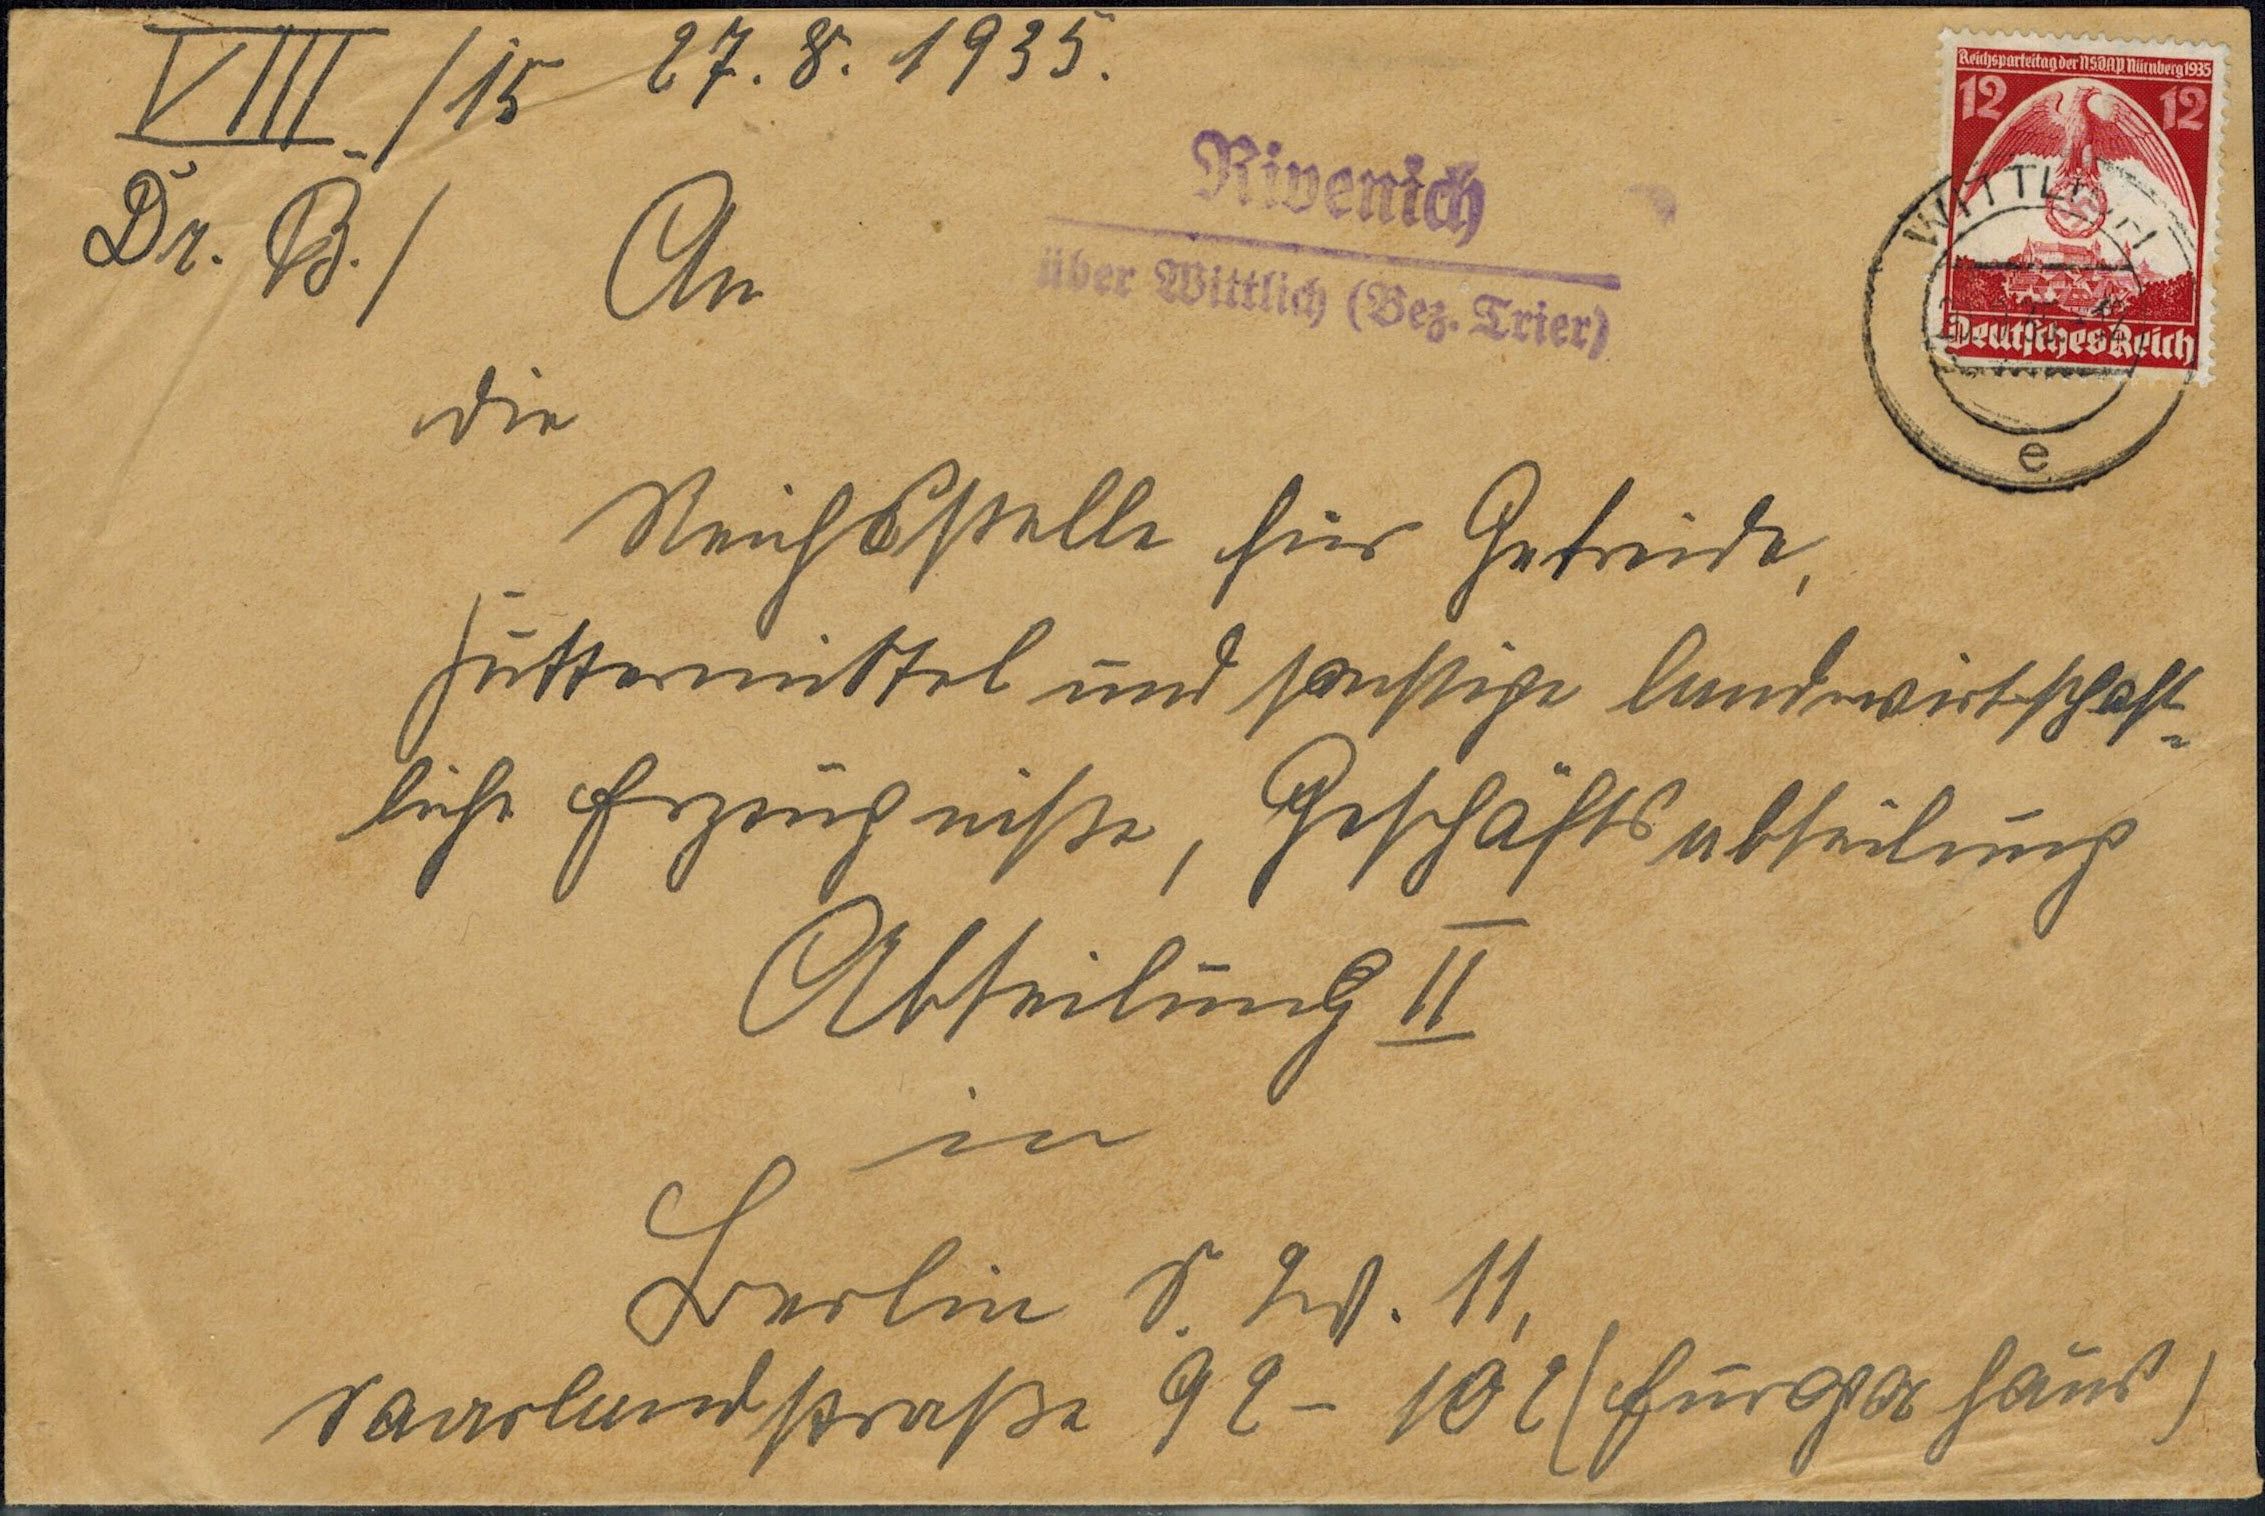 VIII./15 27.8.1935.
Dr. B./
An
Rivenich
über Wittlich (Bez. Trier)
Reichsparteitag der NSDAP Nürnberg 1935
12 12
WITTLICH
e
Deutsches Reich
die
Reichsstelle für Getreide,
Futtermittel und sonstige landwirtschaft-
liche Erzeugnisse, Geschäftsabteilung
Abteilung II
in
Berlin S. W. 11,
Saarlandstraße 92-102 (Europahaus)